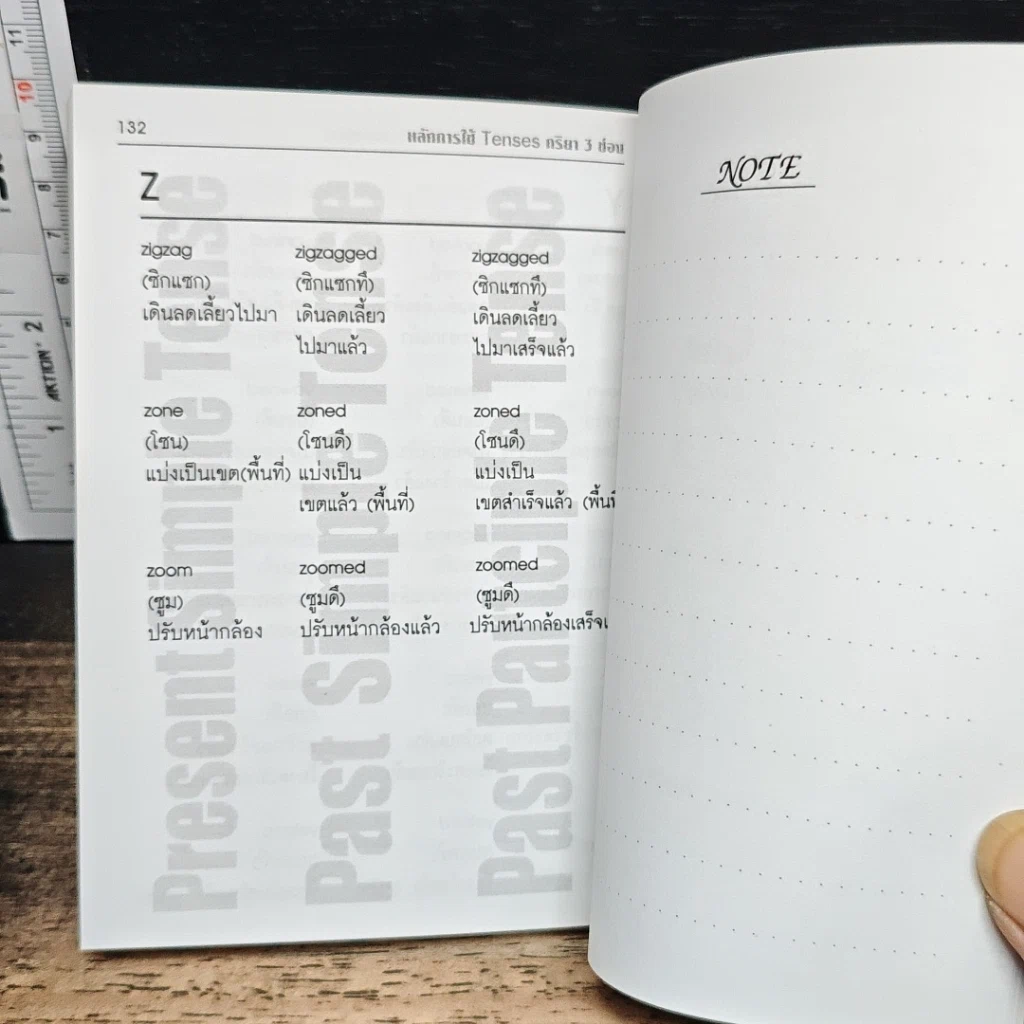 132
หลักการใช้ Tenses กริยา 3 ช่อง
Z
zigzag zigzagged zigzagged
(ซิกแซก) (ซิกแซกทึ) (ซิกแซกทึ)
เดินลดเลี้ยวไปมา เดินลดเลี้ยว เดินลดเลี้ยว
ไปมาแล้ว ไปมาเสร็จแล้ว
zone zoned zoned
(โซน) (โซนดึ) (โซนดึ)
แบ่งเป็นเขต(พื้นที่) แบ่งเป็น แบ่งเป็น
เขตแล้ว (พื้นที่) เขตสำเร็จแล้ว
zoom zoomed zoomed
(ซูม) (ซูมดึ) (ซูมดึ)
ปรับหน้ากล้อง ปรับหน้ากล้องแล้ว ปรับหน้ากล้องเสร็จ
Present Simple Tense
Past Simple Tense
Past Participle Tense
NOTE
11
10
9
8
7
6
2
1
AKTION